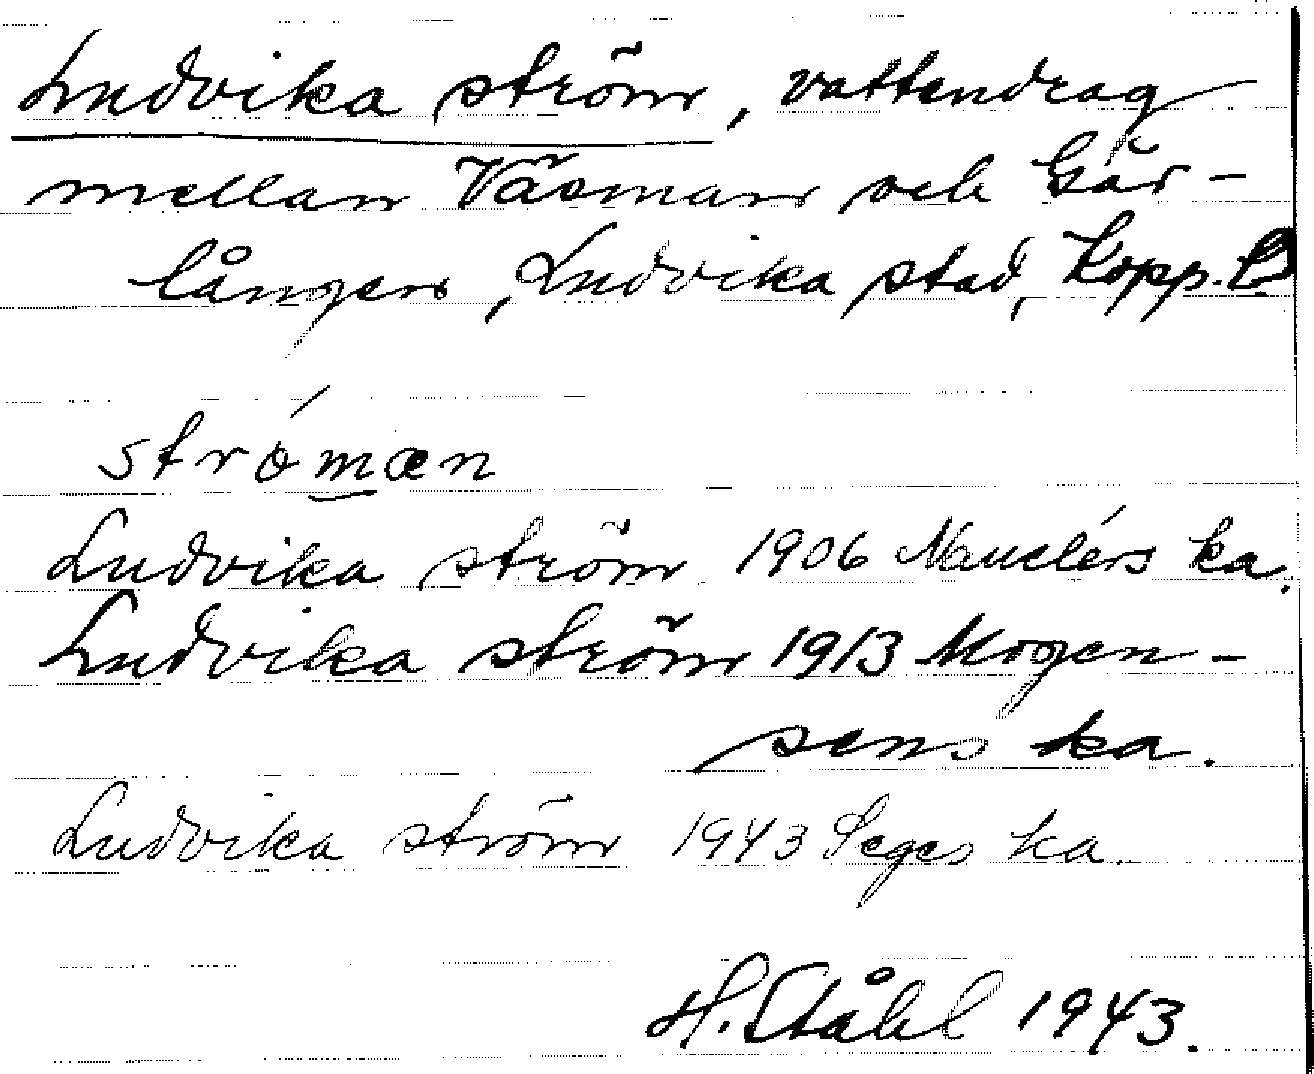 Ludvika ström, vattendrag
mellan Väsman och Går-
lången, Ludvika stad, Kopp. l.
strömæn
Ludvika ström 1906 Nauclérs ka.
Ludvika ström 1913 Mogen-
sens ka.
Ludvika ström 1943 Seges ka.
H. Ståhl 1943.